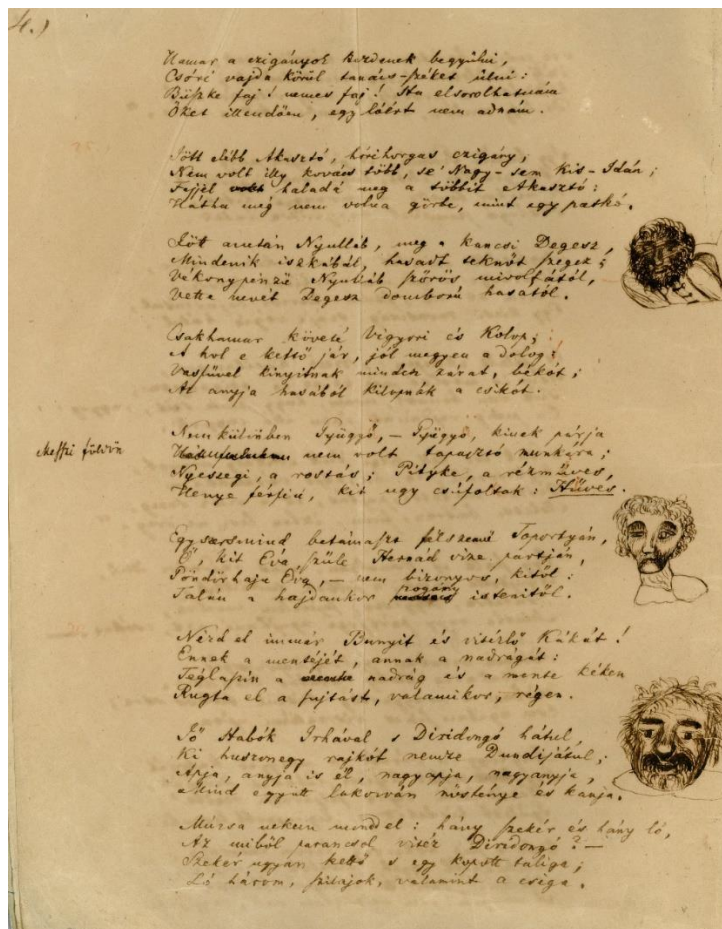 4.)
Hamar a czigányok kezdenek begyülni,
Csóri vajda körül tanács-széket ülni:
Büszke faj! nemes faj! Ha elsorolhatnám
Őket illendően, egy lóért nem adnám.
Jött elébb Akasztó, hórihorgas czigány;
Nem volt illy kovács több, se' Nagy- sem Kis-Idán;
Fejjel haladá meg a többit Akasztó:
Hátha még nem volna görbe, mint egy patkó.
Jött azután Nyulláb, meg a kancsi Degesz,
Mindenik iszkábál, hasadt teknőt szegez;
Vékonypénzü Nyulláb szőrös mivoltától,
Vette nevét Degesz domború hasától.
Csakhamar követé Vigyori és Kolop;
A hol e kettő jár, jól megyen a dolog:
Vasfüvel kinyitnak minden zárat, békót;
Az anyja hasából kilopnák a csikót.
Nemkülönben Gyügyő, – Gyügyő, kinek párja
Messzi földön
nem volt tapasztó munkára;
Nyeszegi, a rostás; Pityke, a rézműves,
Henye férfiu, kit ugy csúfoltak: Hűves.
Egyszersmind betámaszt félszemű Toportyán,
Ő, kit Éva szüle Hernád vize partján,
Pöndörhaju Éva, – nem bizonyos, kitől:
Talán a hajdankor pogány istenitől.
Nézd el immár Bunyit és vitézlő Kákát!
Ennek a mentéjét, annak a nadrágát:
Téglaszin a nadrág és a mente kéken
Rugta el a fujtást, valamikor, régen.
Jő Habók Irhával s Diridongó hátul,
Ki huszonegy rajkót nemze Dundijátul;
Apja, anyja is él, nagyapja, nagyanyja,
Mind együtt lakozván nősténye és kanja.
Múzsa nekem mondd el: hány szekér és hány ló,
Az miből parancsol vitéz Diridongó? –
Szekér ugyan kettő s egy kopott taliga;
Ló három, szilajok, valamint a csiga.